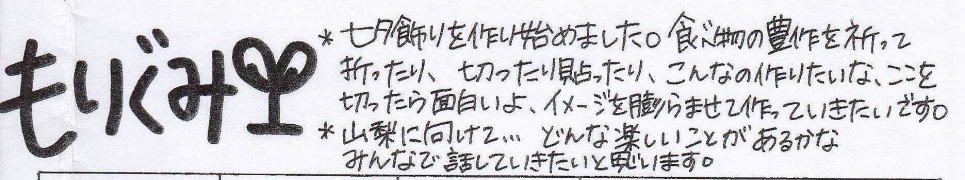 もりぐみ
* 七夕飾りを作り始めました。食べ物の豊作を祈って
折ったり、切ったり貼ったり、こんなの作りたいな、ここを
切ったら面白いよ、イメージを膨らませて作っていきたいです。
* 山梨に向けて... どんな楽しいことがあるかな
みんなで話していきたいと思います。